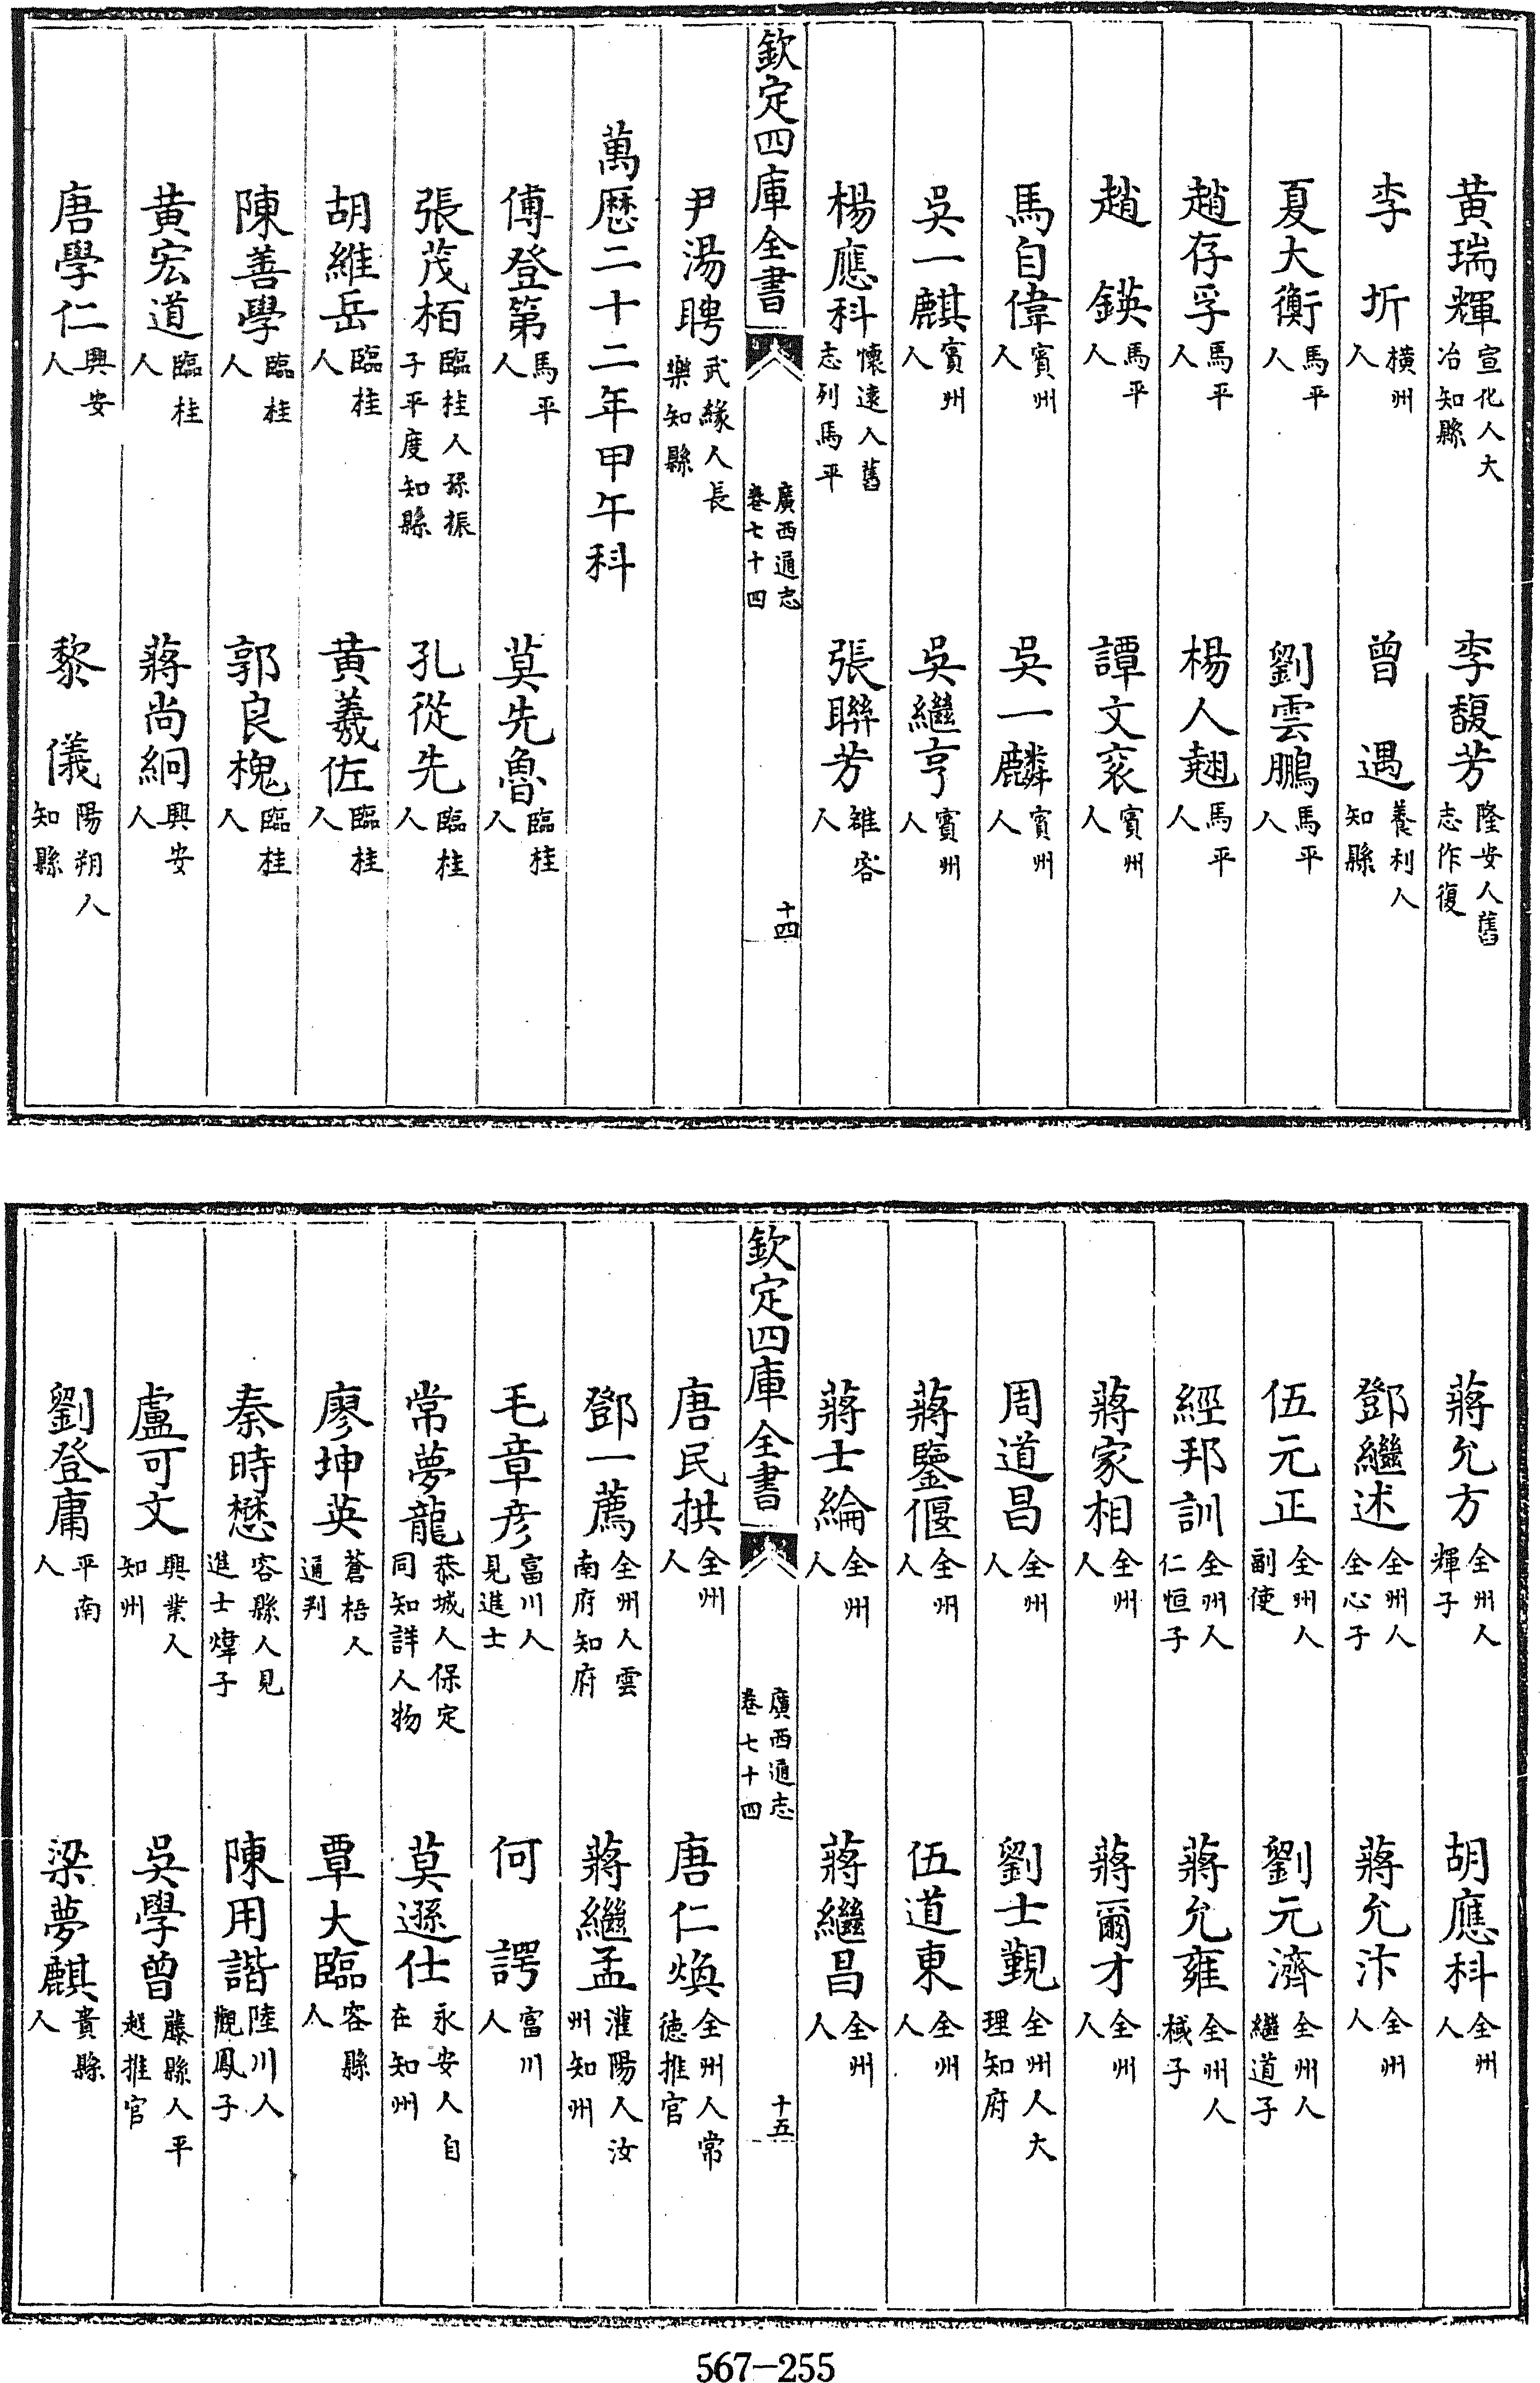 黄瑞輝宣化人大冶知縣　李馥芳隆安人舊志作復
李圻橫州人　曾遇養利人知縣
夏大衡馬平人　劉雲鵬馬平人
趙存孚馬平人　楊人翹馬平人
趙鍈馬平人　譚文衮賓州人
馬自偉賓州人　吳一麟賓州人
吳一麒賓州人　吳繼亨賓州人
楊應科懷遠人舊志列馬平　張聯芳雒容人
欽定四庫全書　廣西通志卷七十四　十四
尹湯聘武緣人長樂知縣
萬厯二十二年甲午科
傅登第馬平人　莫先魯臨桂人
張茂栢臨桂人孫振子平度知縣　孔從先臨桂人
胡維岳臨桂人　黄羲佐臨桂人
陳善學臨桂人　郭良槐臨桂人
黄宏道臨桂人　蔣尚絅興安人
唐學仁興安人　黎儀陽朔人知縣
蔣允方全州人輝子　胡應科全州人
鄧繼述全州人全心子　蔣允汴全州人
伍元正全州人副使　劉元濟全州人繼道子
經邦訓全州人仁恒子　蔣允雍全州人棫子
蔣家相全州人　蔣爾才全州人
周道昌全州人　劉士覲全州人大理知府
蔣鑒偃全州人　伍道東全州人
蔣士綸全州人　蔣繼昌全州人
欽定四庫全書　廣西通志卷七十四　十五
唐民拱全州人　唐仁煥全州人常德推官
鄧一薦全州人雲南府知府　蔣繼孟灌陽人汝州知州
毛章彦富川人見進士　何諤富川人
常夢龍恭城人保定同知詳人物　莫遜仕永安人自在知州
廖坤英蒼梧人通判　覃大臨容縣人
秦時懋容縣人見進士煒子　陳用諧陸川人觀鳳子
盧可文興業人知州　吳學曾藤縣人平越推官
劉登庸平南人　梁夢麒貴縣人
567-255